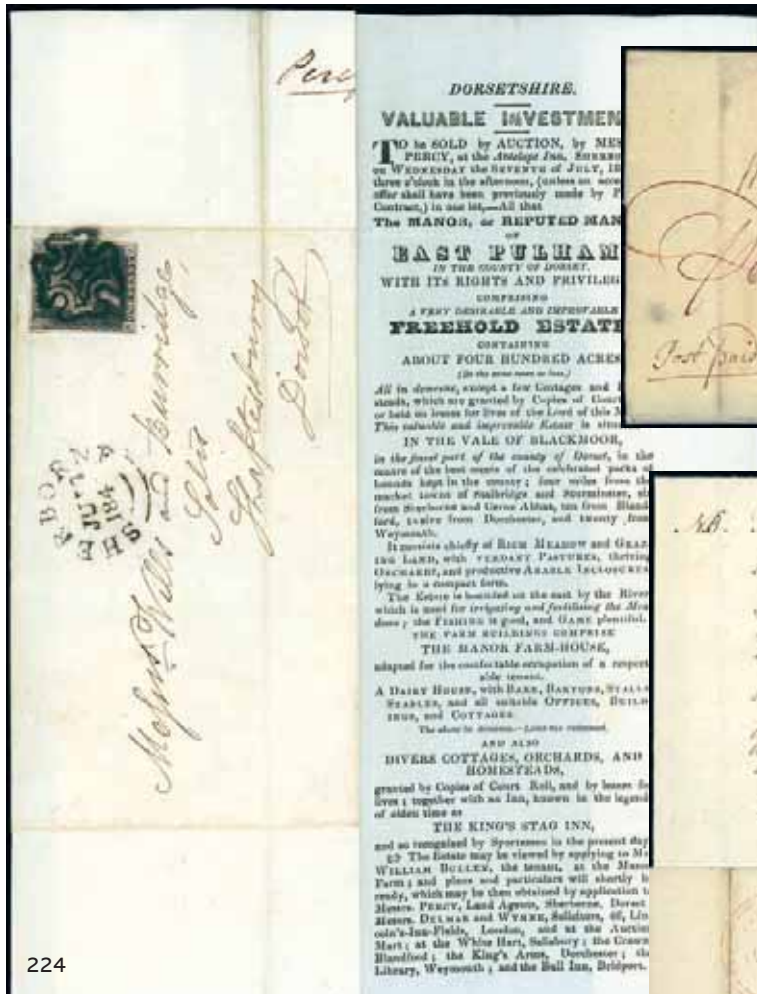 DORSETSHIRE.
VALUABLE INVESTMEN
TO be SOLD by AUCTION, by MES
PERCY, at the Antelope Inn, SHERBO
on WEDNESDAY the SEVENTH of JULY, 18
three o'clock in the afternoon, (unless an acce
offer shall have been previously made by P
Contract,) in one lot,—All that
The MANOR, or REPUTED MAN
OF
EAST PULHAM
IN THE COUNTY OF DORSET,
WITH ITS RIGHTS AND PRIVILEG
COMPRISING
A VERY DESIRABLE AND IMPROVABLE
FREEHOLD ESTATE
CONTAINING
ABOUT FOUR HUNDRED ACRES
(Be the same more or less,)
All in demesne, except a few Cottages and
steads, which are granted by Copies of Court
or held on leases for lives of the Lord of this M
This valuable and improvable Estate is situa
IN THE VALE OF BLACKMOOR,
in the finest part of the county of Dorset, in the
centre of the best meets of the celebrated packs of
hounds kept in the county; four miles from the
market towns of Stalbridge and Sturminster,
from Sherborne and Cerne Abbas, ten from Bland
ford, twelve from Dorchester, and twenty from
Weymouth.
It consists chiefly of RICH MEADOW and GRAZ
ING LAND, with VERDANT PASTURES, thriving
ORCHARDS, and productive ARABLE INCLOSURES
lying in a compact form.
The Estate is bounded on the east by the River
which is used for irrigating and fertilising the Mea
dows; the FISHING is good, and GAME plentiful.
THE FARM BUILDINGS COMPRISE
THE MANOR FARM-HOUSE,
adapted for the comfortable occupation of a respect
able tenant.
A DAIRY HOUSE, with BARN, BARTONS, STALLS
STABLES, and all suitable OFFICES, BUILD
INGS, and COTTAGES
The above in demesne.—
AND ALSO
DIVERS COTTAGES, ORCHARDS, AND
HOMESTEADS,
granted by Copies of Court Roll, and by leases for
lives; together with an Inn, known in the legend
of olden time as
THE KING'S STAG INN,
and so recognised by Sportsmen in the present day
The Estate may be viewed by applying to Mr
WILLIAM BULLEN, the tenant, at the Manor
Farm; and plans and particulars will shortly be
ready, which may be then obtained by application to
Messrs. PERCY, Land Agents, Sherborne, Dorset
Messrs. DELMAR and WYNNE, Solicitors, Lin
coln's-Inn-Fields, London, and at the Auction
Mart; at the White Hart, Salisbury; the Crown
Blandford; the King's Arms, Dorchester; the
Library, Weymouth; and the Bull Inn, Bridport.
Percy
Messrs Wills and Burridge,
Solrs
Shaftesbury
Dorset
SHERBORNE
JU
184
Post paid
N.B.
224